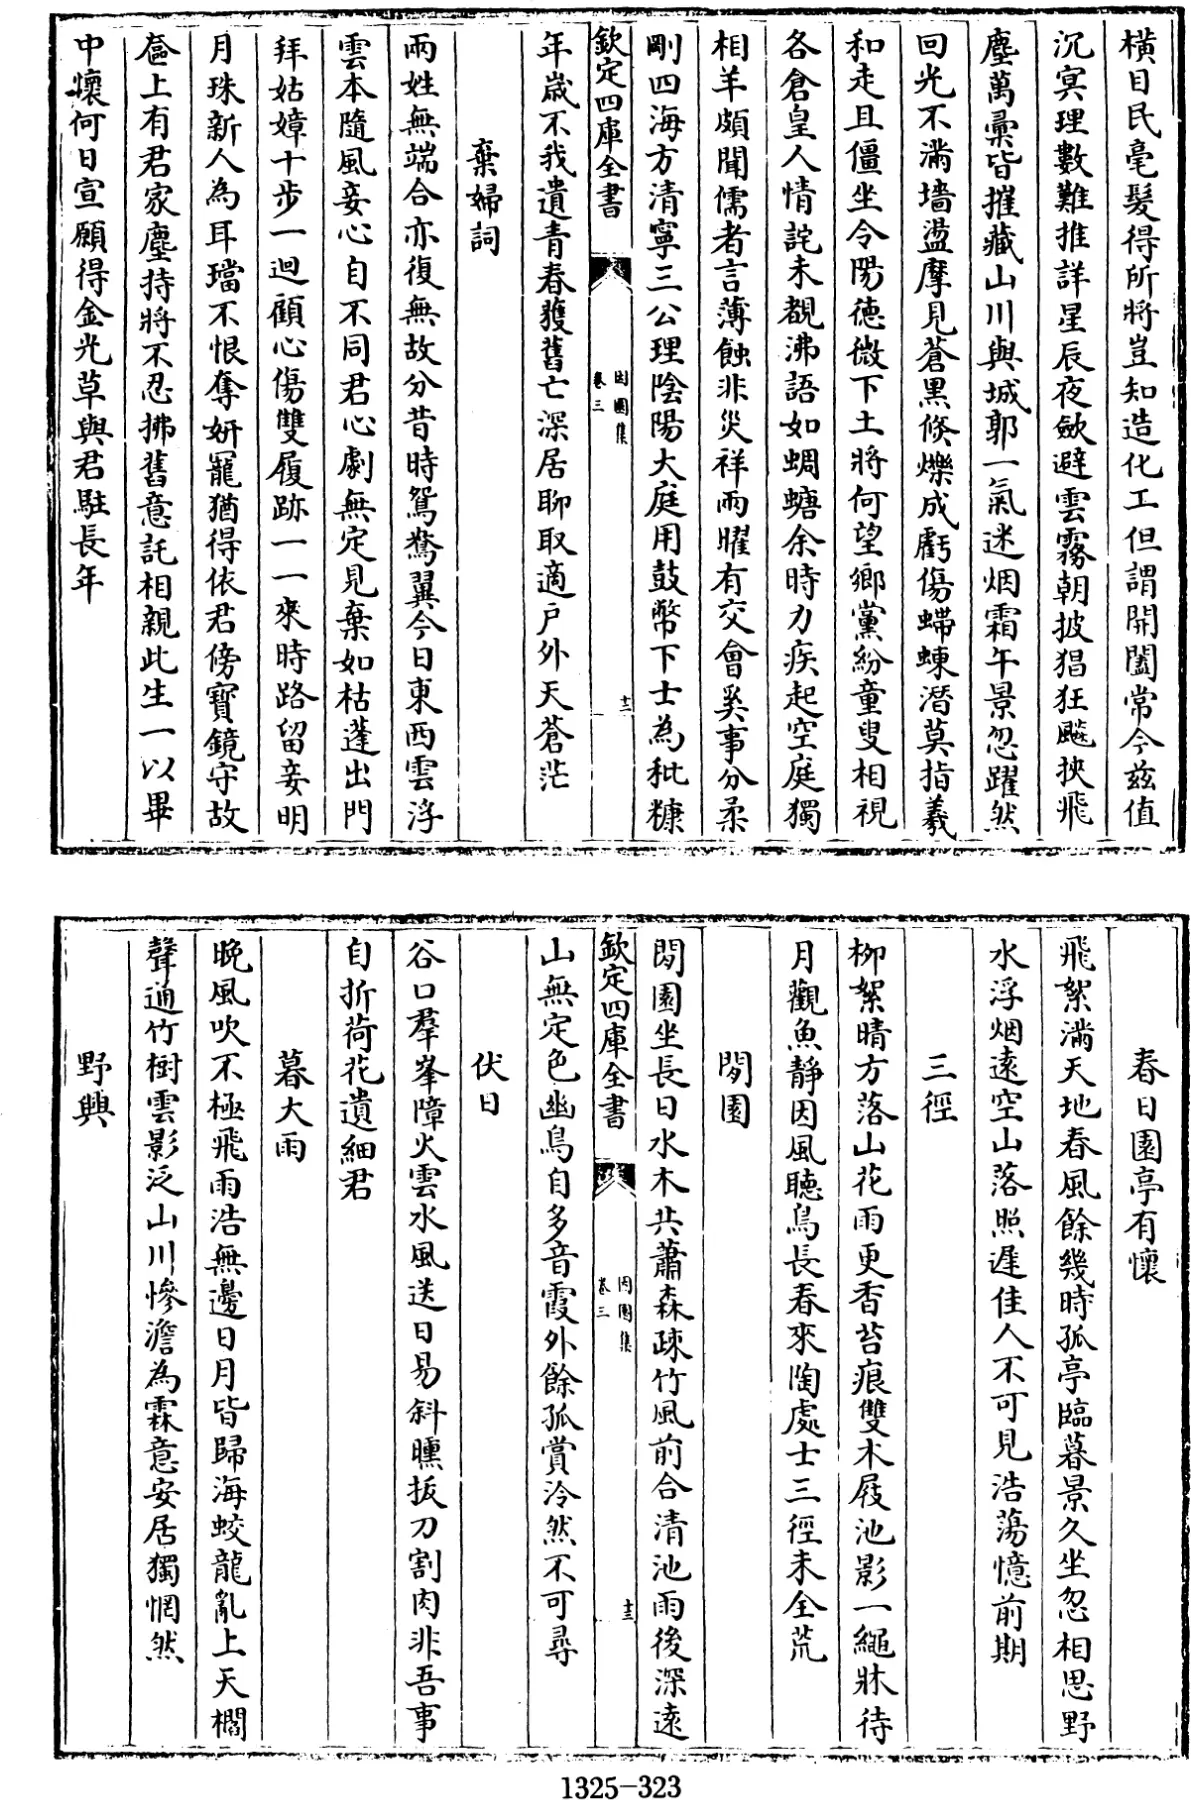 橫目民毫髮得所將豈知造化工但謂開闔常今兹值
沉冥理數難推詳星辰夜斂避雲霧朝披猖狂飈挾飛
塵萬彙皆摧藏山川與城郭一氣迷烟霜午景忽躍然
回光不滿墻盪摩見蒼黑倐爍成虧傷蝃蝀潛莫指羲
和走且僵坐令陽德微下土將何望鄉黨紛童叟相視
各倉皇人情詫未覩沸語如蜩螗余時力疾起空庭獨
相羊頗聞儒者言薄蝕非災祥兩曜有交會奚事分柔
剛四海方清寧三公理陰陽大庭用鼓幣下士為秕糠
欽定四庫全書
因園集
卷三
十二
年歲不我遺青春獲舊亡深居聊取適户外天蒼茫
棄婦詞
兩姓無端合亦復無故分昔時鴛鴦翼今日東西雲浮
雲本隨風妾心自不同君心劇無定見棄如枯蓬出門
拜姑嫜十步一迴顧心傷雙履跡一一來時路留妾明
月珠新人為耳璫不恨奪妍寵猶得依君傍寶鏡守故
奩上有君家塵持將不忍拂舊意託相親此生一以畢
中懷何日宣願得金光草與君駐長年
春日園亭有懷
飛絮滿天地春風餘幾時孤亭臨暮景久坐忽相思野
水浮烟遠空山落照遲佳人不可見浩蕩憶前期
三徑
柳絮晴方落山花雨更香苔痕雙木屐池影一繩牀待
月觀魚靜因風聽鳥長春來陶處士三徑未全荒
閒園
閒園坐長日水木共蕭森疎竹風前合清池雨後深遠
欽定四庫全書
因園集
卷三
十三
山無定色幽鳥自多音霞外餘孤賞泠然不可尋
伏日
谷口羣峯障火雲水風送日易斜曛拔刀割肉非吾事
自折荷花遺細君
暮大雨
晚風吹不極飛雨浩無邊日月皆歸海蛟龍亂上天櫩
聲通竹樹雲影泛山川慘澹為霖意安居獨惘然
野興
1325-323